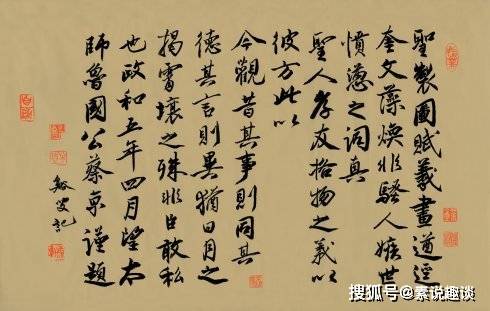 聖製圖賦羲畫道經
奎文藻煥非騷人嫉世
憤懣之詞真
聖人孝友格物之義以
彼方此以
今觀昔其事則同其
德其言則異猶日月之
揭霄壤之殊非臣敢私
也政和五年四月望太
師魯國公蔡京謹題
叟記
搜狐号@素说趣谈